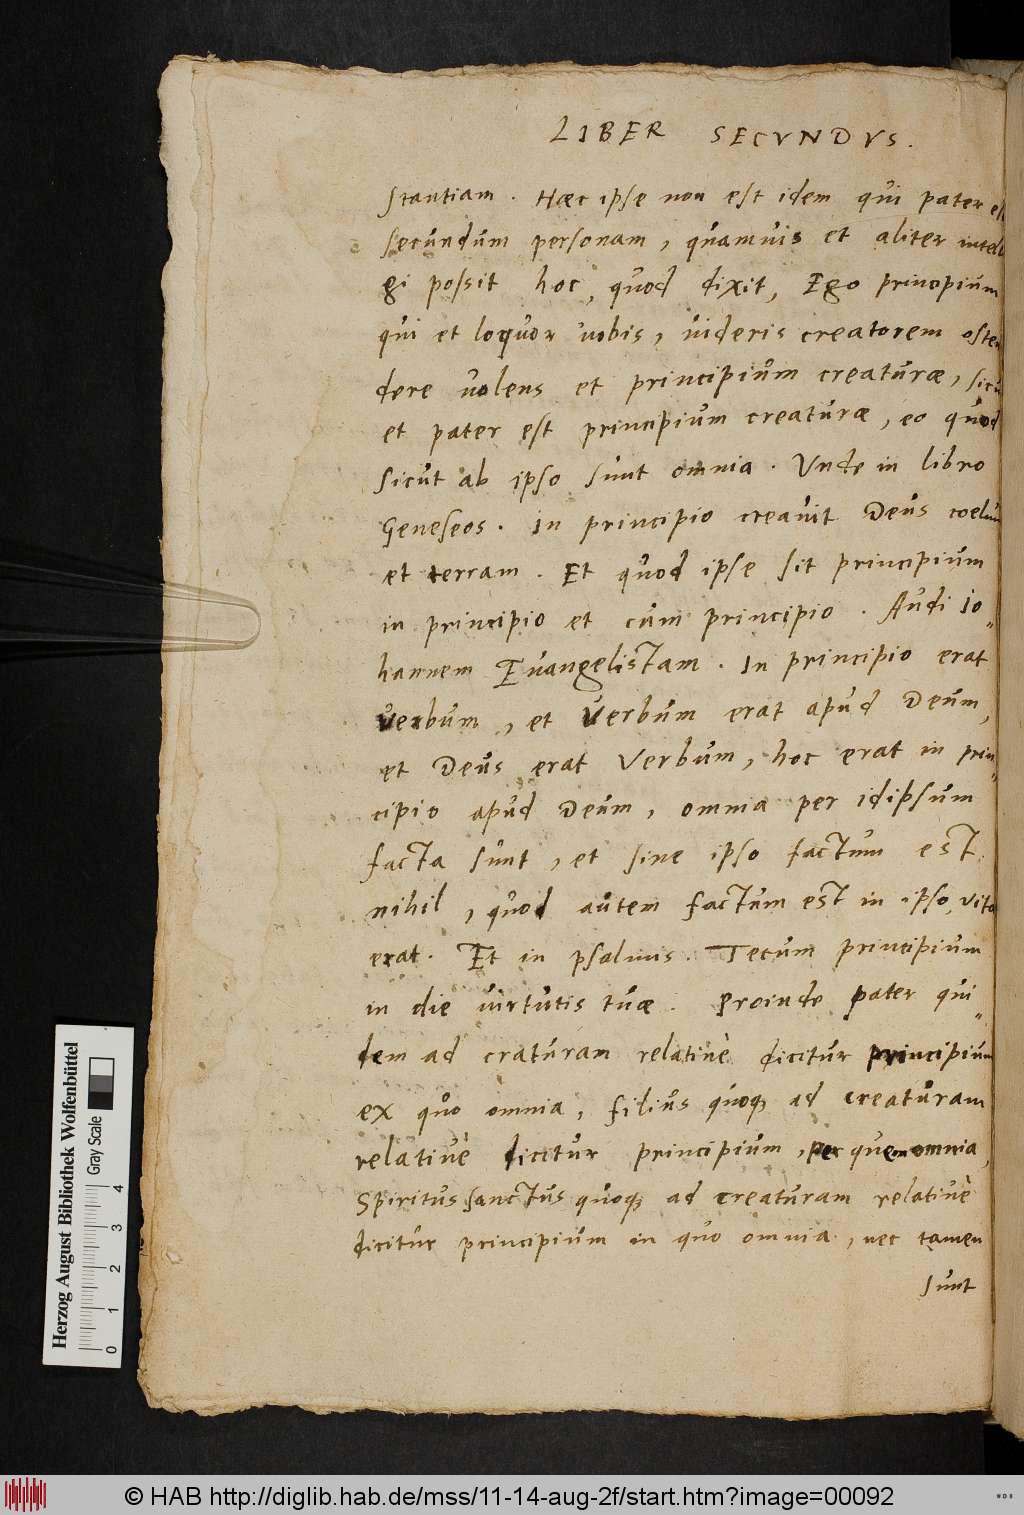 LIBER SECVNDVS.
stantiam. Hæc ipse non est idem qui pater est
secundum personam, quamvis et aliter intelli
gi possit hoc, quod dixit, Ego principium
qui et loquor vobis, videris creatorem osten
dere volens et principium creaturæ, sicu
et pater est principium creaturæ, eo quod
sicut ab ipso sunt omnia. Vnde in libro
Geneseos. In principio creavit Deus coelum
et terram. Et quod ipse sit principium
in principio et cum principio. Audi Io=
hannem Evangelistam. In principio erat
verbum, et Verbum erat apud Deum,
et Deus erat Verbum, hoc erat in prin=
cipio apud Deum, omnia per idipsum
facta sunt, et sine ipso factum est
nihil, quod autem factum est in ipso, vita
erat. Et in psalmis. Tecum principium
in die virtutis tuæ. Proinde pater qui=
dem ad craturam relativè dicitur principium
ex quo omnia, filius quoq ad creaturam
relativè dicitur principium, per quem omnia,
Spiritus sanctus quoq ad creaturam relativè
dicitur principium in quo omnia, nec tamen
sunt
Herzog August Bibliothek Wolfenbüttel
Gray Scale
0 1 2 3 4
© HAB http://diglib.hab.de/mss/11-14-aug-2f/start.htm?image=00092